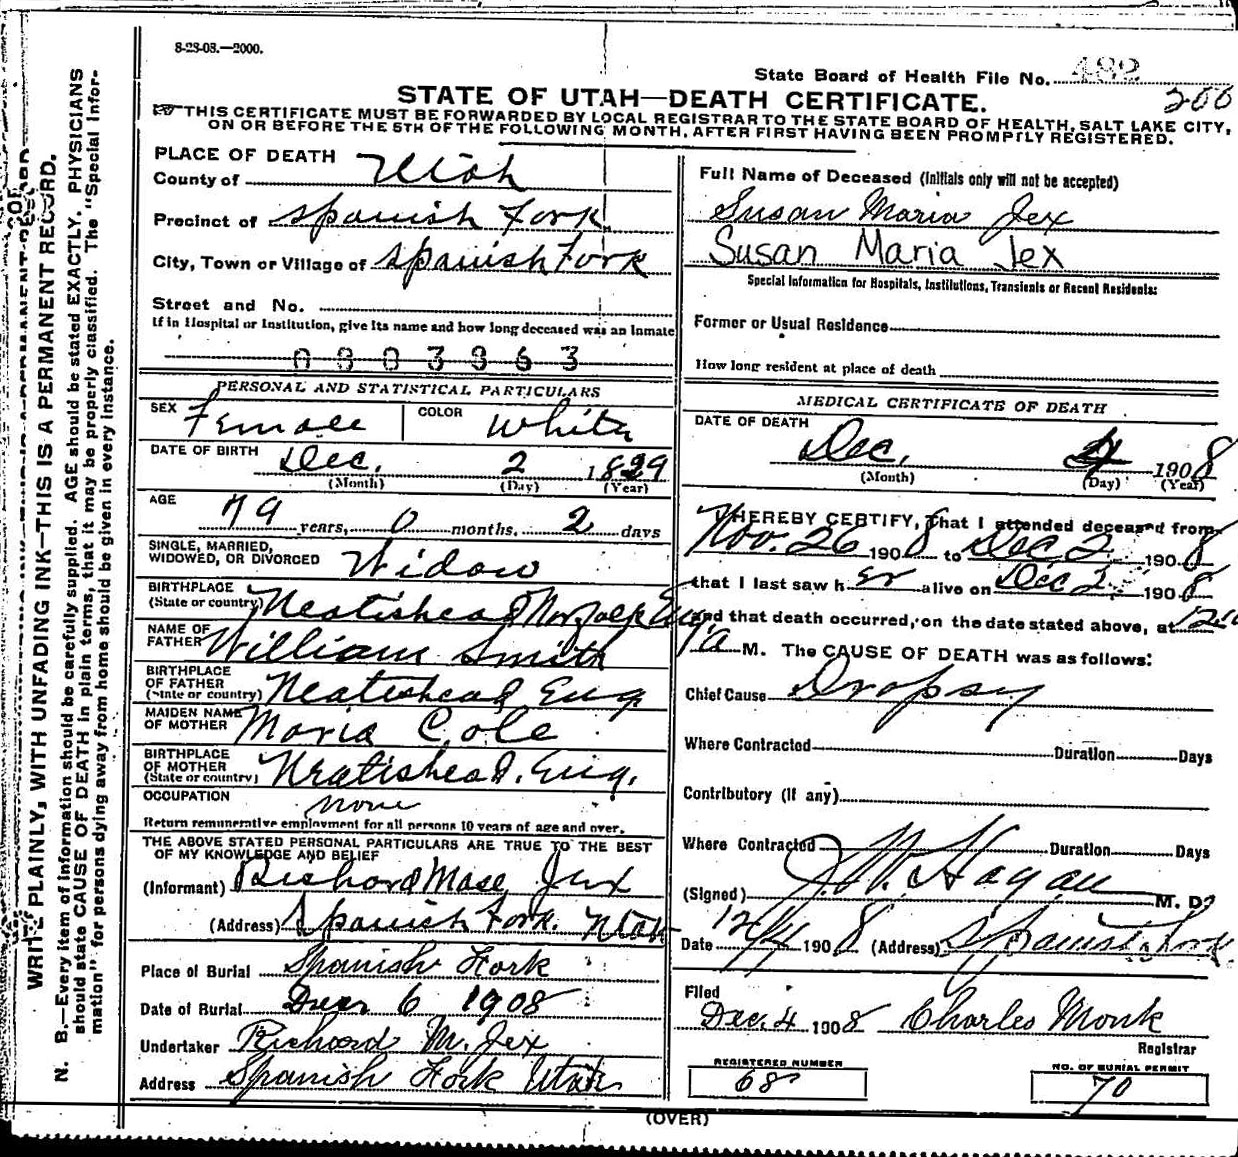 8-28-08.—2000.
State Board of Health File No. 482
200
STATE OF UTAH—DEATH CERTIFICATE.
THIS CERTIFICATE MUST BE FORWARDED BY LOCAL REGISTRAR TO THE STATE BOARD OF HEALTH, SALT LAKE CITY,
ON OR BEFORE THE 5TH OF THE FOLLOWING MONTH, AFTER FIRST HAVING BEEN PROMPTLY REGISTERED.
WRITE PLAINLY, WITH UNFADING INK—THIS IS A PERMANENT RECORD.
N. B.—Every item of information should be carefully supplied. AGE should be stated EXACTLY. PHYSICIANS
should state CAUSE OF DEATH in plain terms, that it may be properly classified. The "Special Infor-
mation" for persons dying away from home should be given in every instance.
PLACE OF DEATH
County of Utah
Precinct of Spanish Fork
City, Town or Village of Spanish Fork
Street and No.
If in Hospital or Institution, give its name and how long deceased was an Inmate
0803863
PERSONAL AND STATISTICAL PARTICULARS
SEX Female COLOR White
DATE OF BIRTH Dec. 2 1829
(Month) (Day) (Year)
AGE 79 years, 0 months, 2 days
SINGLE, MARRIED,
WIDOWED, OR DIVORCED Widow
BIRTHPLACE
(State or country) Neatishead Norfolk Eng
NAME OF
FATHER William Smith
BIRTHPLACE
OF FATHER
(State or country) Neatishead Eng
MAIDEN NAME
OF MOTHER Maria Cole
BIRTHPLACE
OF MOTHER
(State or country) Neatishead. Eng.
OCCUPATION none
Return remunerative employment for all persons 10 years of age and over.
THE ABOVE STATED PERSONAL PARTICULARS ARE TRUE TO THE BEST
OF MY KNOWLEDGE AND BELIEF
(Informant) Richard Mase Jex
(Address) Spanish Fork. Utah
Place of Burial Spanish Fork
Date of Burial Dec 6 1908
Undertaker Richard M. Jex
Address Spanish Fork Utah
Full Name of Deceased (Initials only will not be accepted)
Susan Maria Jex
Susan Maria Jex
Special Information for Hospitals, Institutions, Transients or Recent Residents:
Former or Usual Residence
How long resident at place of death
MEDICAL CERTIFICATE OF DEATH
DATE OF DEATH
Dec. 4 1908
(Month) (Day) (Year)
I HEREBY CERTIFY, That I attended deceased from
Nov. 26 1908 to Dec 2 1908
that I last saw her alive on Dec 2 1908
and that death occurred, on the date stated above, at
a M. The CAUSE OF DEATH was as follows:
Chief Cause Dropsy
Where Contracted Duration Days
Contributory (if any)
Where Contracted Duration Days
(Signed) J. W. Hagan M. D.
Date 12/4 1908 (Address) Spanish Fork
Filed
Dec. 4 1908 Charles Monk
Registrar
REGISTERED NUMBER
68
NO. OF BURIAL PERMIT
70
(OVER)